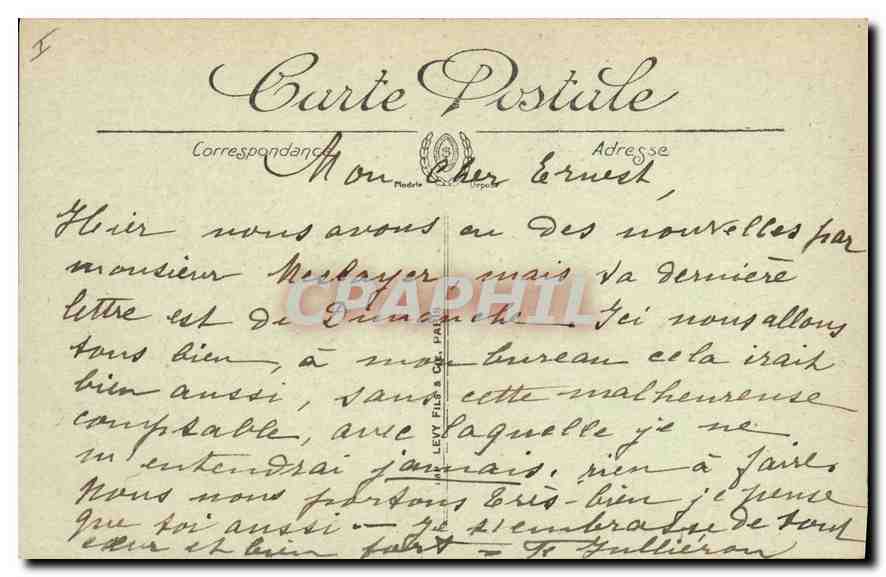 I
Carte Postale
Correspondance
Adresse
Modèle Déposé
Mon Cher Ernest,
Hier nous avons eu des nouvelles par
monsieur mais sa dernière
lettre est de Dimanche. Ici nous allons
tous bien, à mon bureau cela irait
bien aussi, sans cette malheureuse
comptable, avec laquelle je ne
m'entendrai jamais, rien à faire.
Nous nous portons très-bien je pense
que toi aussi - Je t'embrasse de tout
cœur et bien fort =
LEVY FILS & CIE. PARIS
CPAPHIL